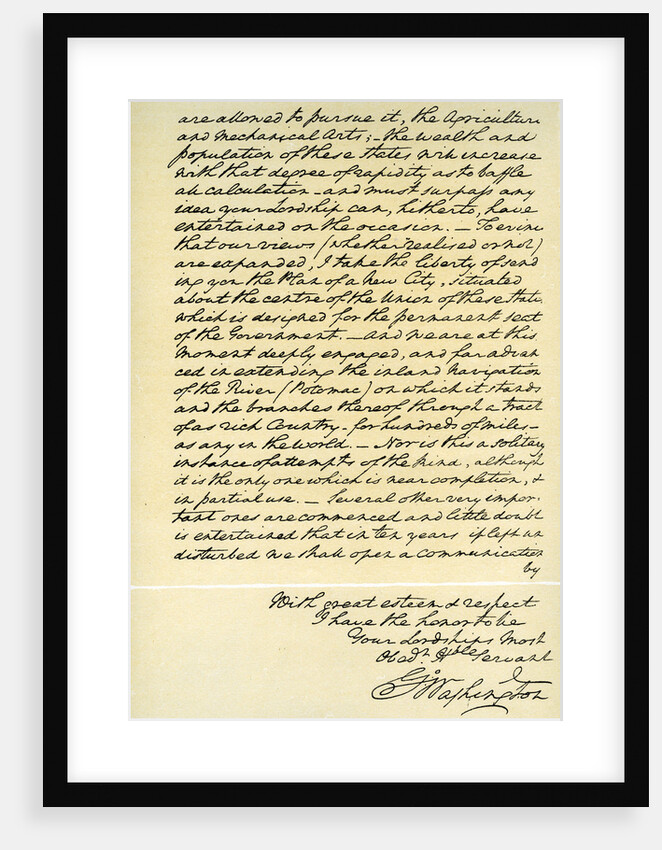 are allowed to pursue it, the Agriculture
and Mechanical Arts; – the wealth and
population of these States will increase
with that degree of rapidity as to baffle
all calculation – and must surpass any
idea your Lordship can, hitherto, have
entertained on the occasion. – To evince
that our views (whether realised or not)
are expanded, I take the liberty of send
ing you the Plan of a New City, situated
about the centre of the Union of these States
which is designed for the permanent seat
of the Government. – And we are at this
moment deeply engaged, and far advan
ced in extending the inland Navigation
of the River (Potomac) on which it stands
and the branches thereof through a tract
of as rich Country – for hundreds of miles –
as any in the world. – Nor is this a solitary
instance of attempts of the kind, although
it is the only one which is near completion, &
in partial use. – Several other very impor-
tant ones are commenced and little doubt
is entertained that in ten years if left un
disturbed we shall open a communication
by
With great esteem & respect
I have the honor to be
Your Lordships Most
Obedt. Hble Servant
Go: Washington